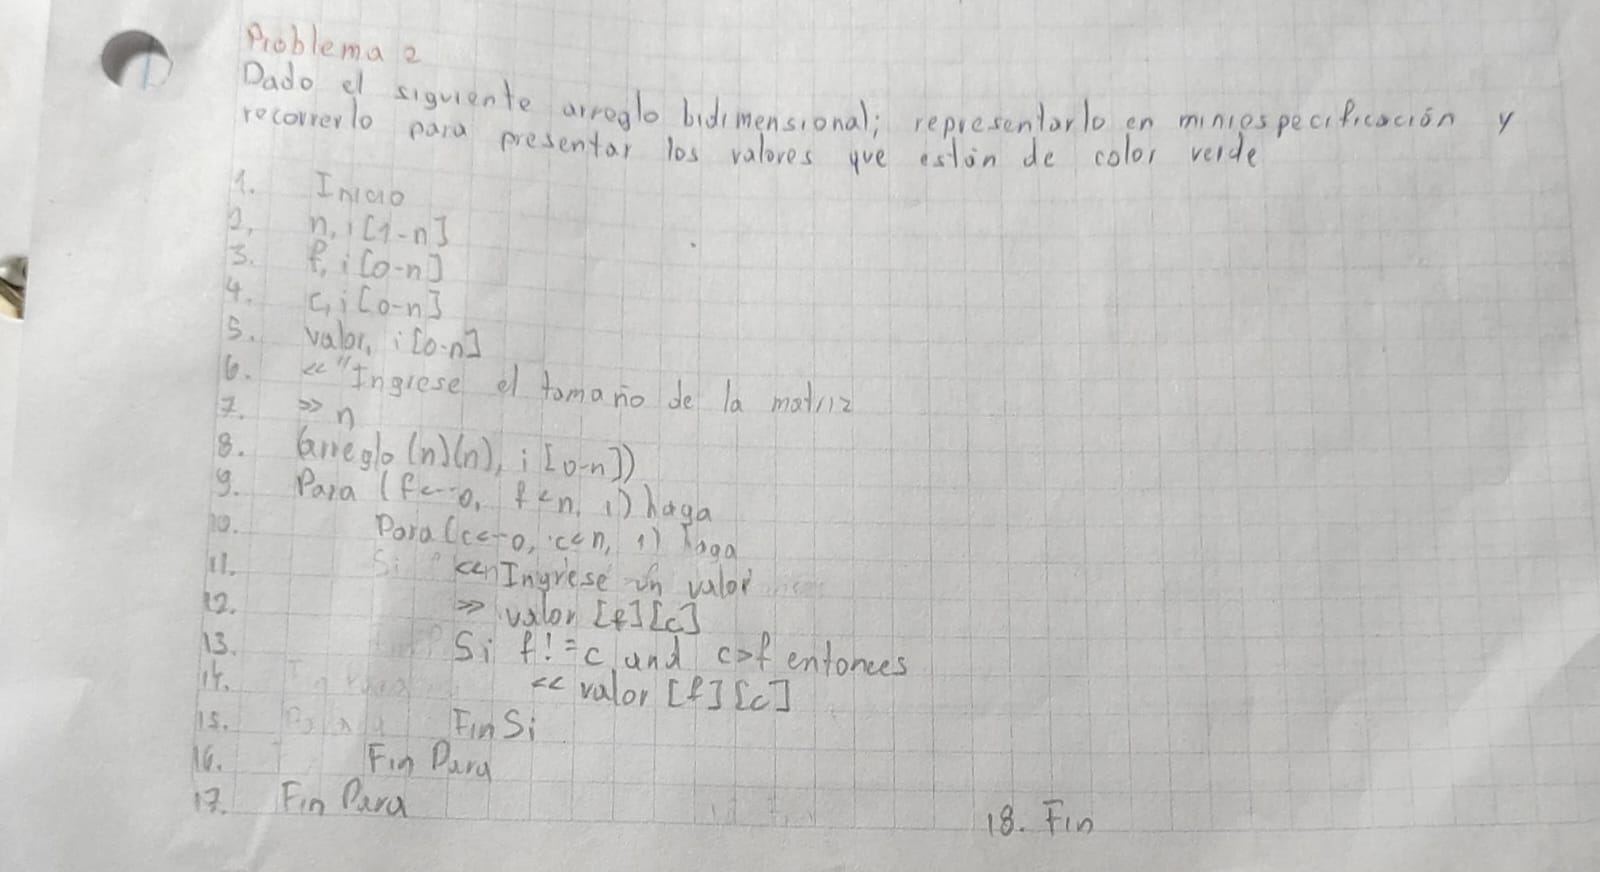 Problema 2
Dado el siguiente arreglo bidimensional; representarlo en miniespecificación y
recorrerlo para presentar los valores que están de color verde
1. Inicio
2. n, i [1-n]
3. f, i [0-n]
4. c, i [0-n]
5. valor, i [0-n]
6. << "Ingrese el tamaño de la matriz
7. >> n
8. (arreglo (n)(n), i [0-n])
9. Para (f<--0, f<n, 1) haga
10. Para (c<--0, c<n, 1) haga
11. <<"Ingrese un valor
12. >> valor [f][c]
13. Si f!=c and c>f entonces
14. << valor [f][c]
15. Fin Si
16. Fin Para
17. Fin Para
18. Fin